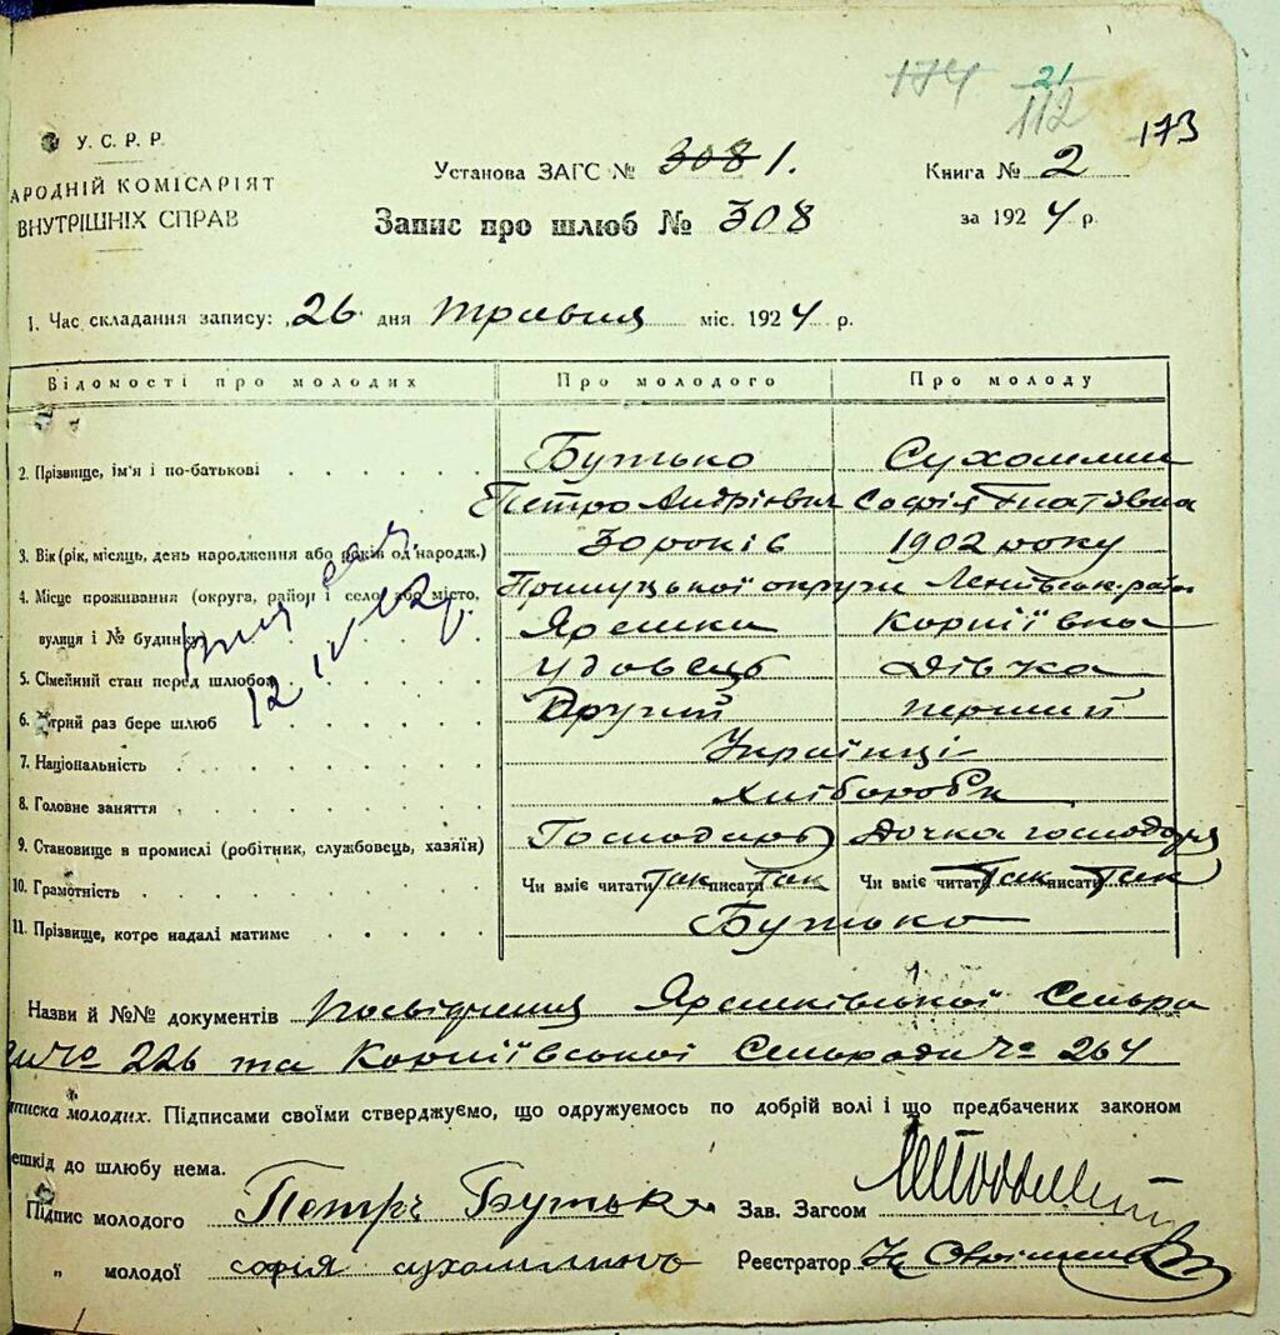 174 21
112 173
У. С. Р. Р.
АРОДНІЙ КОМІСАРІЯТ
ВНУТРІШНІХ СПРАВ
Установа ЗАГС № 308 1.
Книга № 2
Запис про шлюб № 308
за 1924 р.
1. Час складання запису: 26 дня травня міс. 1924 р.
Відомості про молодих Про молодого Про молоду
2. Прізвище, ім'я і по-батькові Бутько Сухомлин
Петро Андрієвич Софія Гнатівна
3. Вік (рік, місяць, день народження або років од народж.) 30 років 1902 року
4. Місце проживання (округа, район і село або місто, Прилуцької округи Ленінськ. рай
вулиця і № будинку Ярошки Корніївка
5. Сімейний стан перед шлюбом Удовець Дівка
6. Котрий раз бере шлюб Другий перший
7. Національність Українці
8. Головне заняття Хлібороби
9. Становище в промислі (робітник, службовець, хазяїн) Господарь Дочка господаря
10. Грамотність Чи вміє читати Так писати Так Чи вміє читати Так писати Так
11. Прізвище, котре надалі матиме Бутько
12 IV
Назви й №№ документів Посвідчення Сельра
ди № 226 та Корніївської Сельради № 264
писка молодих. Підписами своїми стверджуємо, що одружуємось по добрій волі і що предбачених законом
ешкід до шлюбу нема.
Підпис молодого Петръ Бутько Зав. Загсом
" молодої софія сухомлинъ Реєстратор